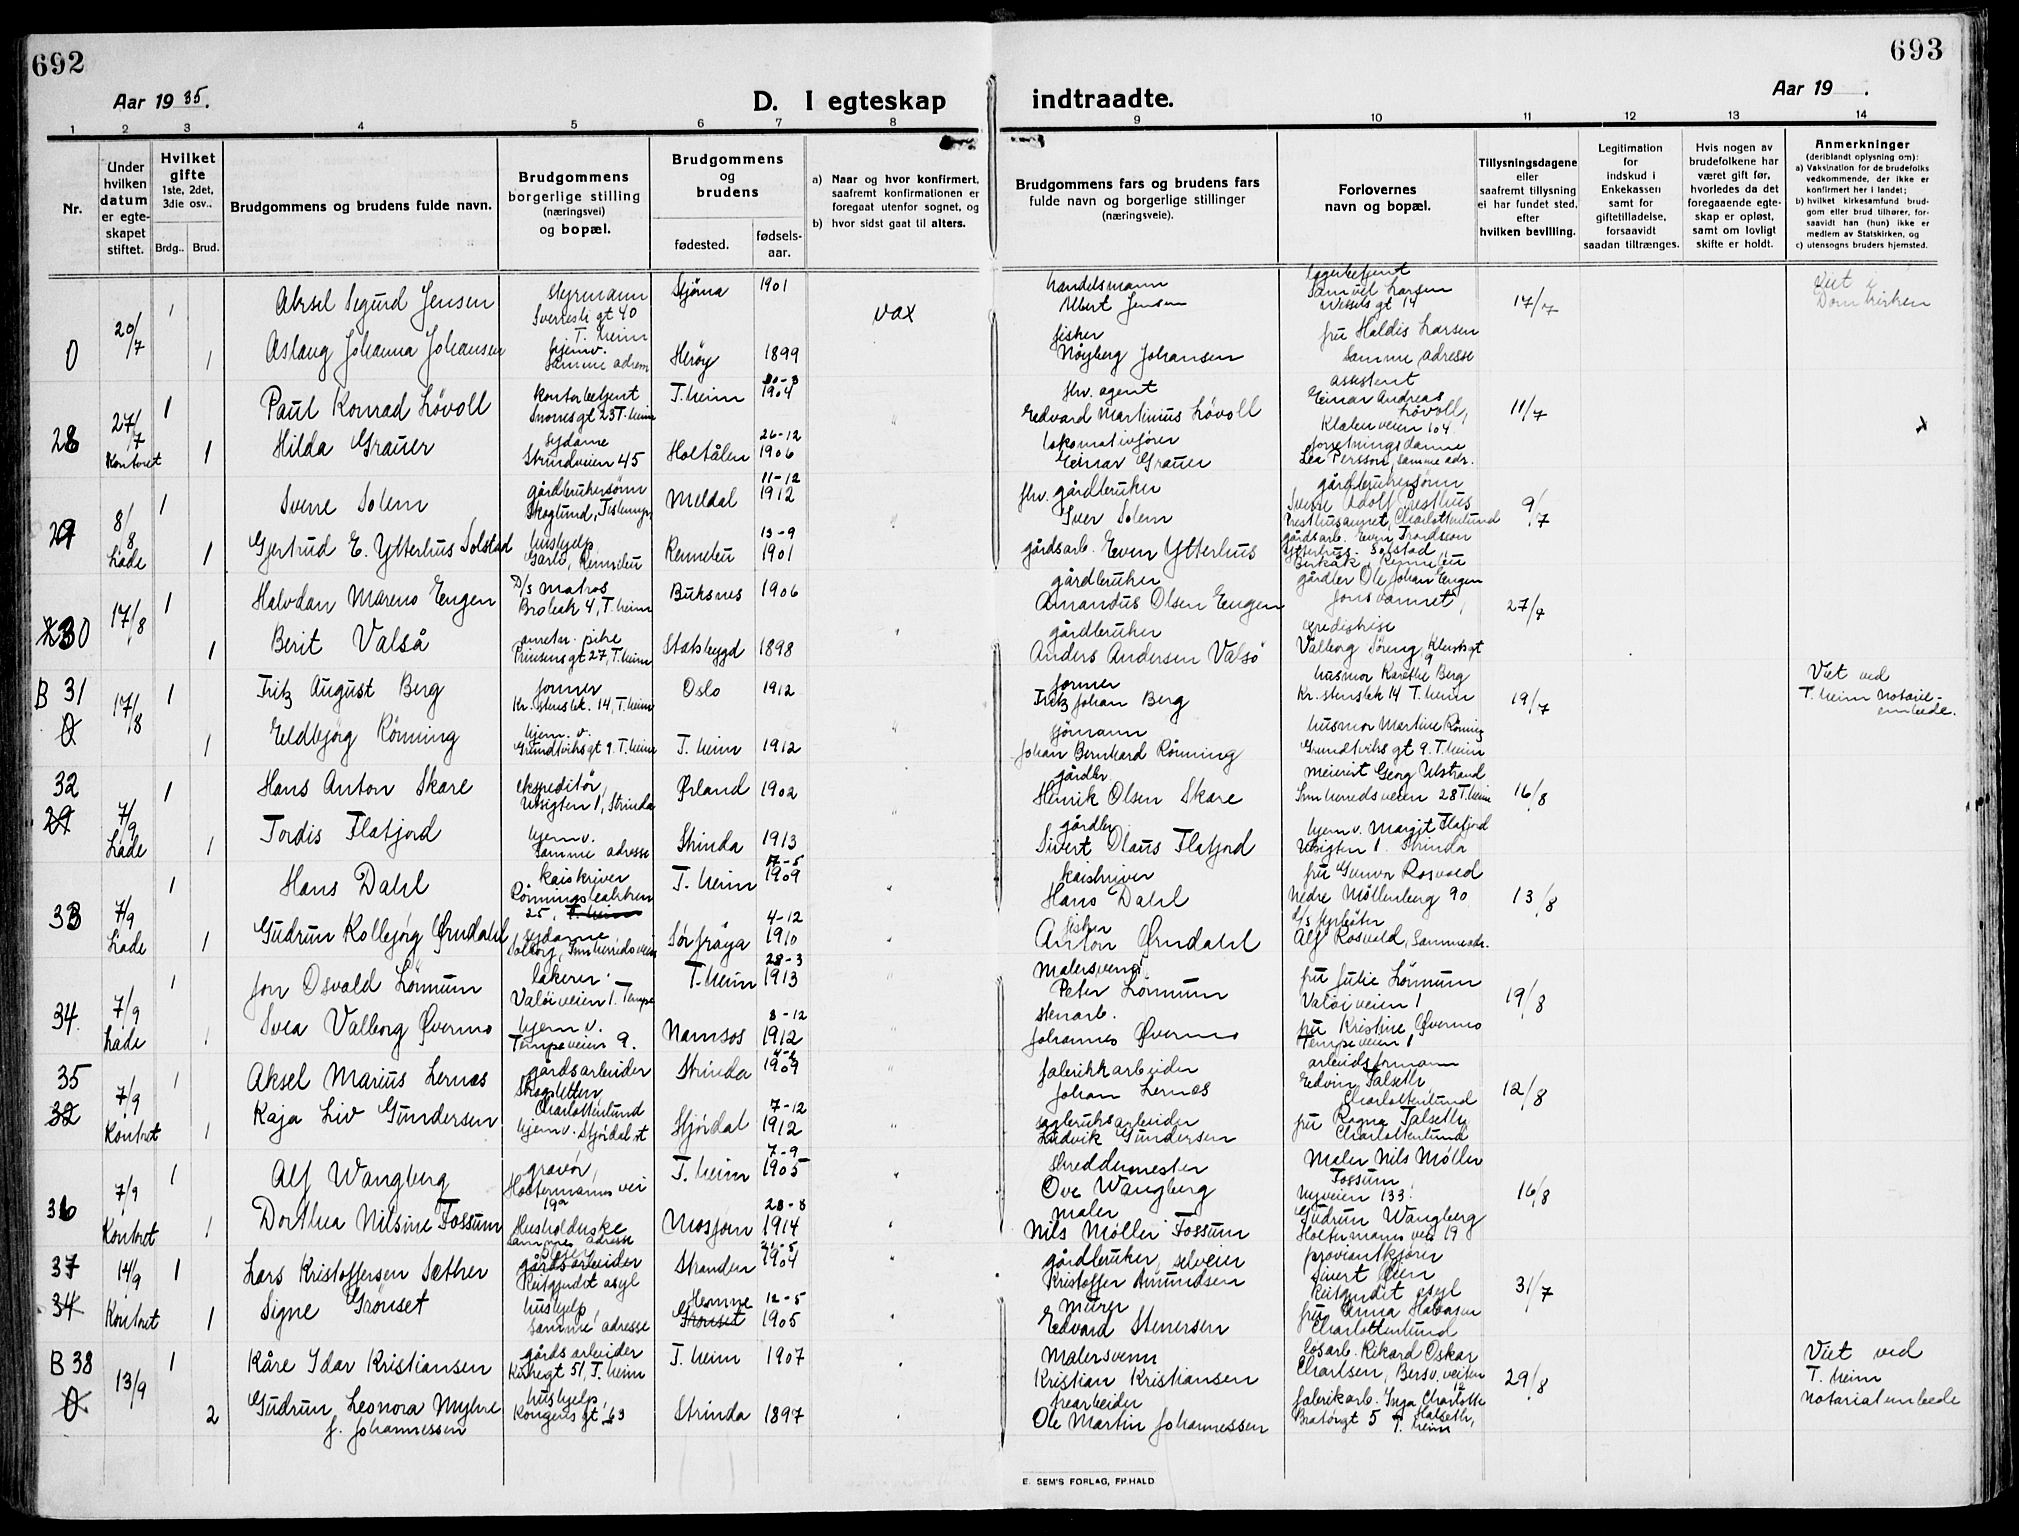 692
Aar 1935.
D. I egteskap
1 2 3 4 5 6 7 8
Nr.
Under hvilken datum er egteskapet stiftet.
Hvilket gifte 1ste, 2det, 3die osv..
Brdg.. Brud.
Brudgommens og brudens fulde navn.
Brudgommens borgerlige stilling (næringsvei) og bopæl.
Brudgommens og brudens
fødested. fødselsaar.
a) Naar og hvor konfirmert, saafremt konfirmationen er foregaat utenfor sognet, og
b) hvor sidst gaat til alters.
0
20/7
1
Aksel Sigurd Jensen
styrmann
Sverresli gt 40
T.heim
1901
vax
1
Aslaug Johanna Johansen
hjemv.
samme adresse
Herøy
1899
28
27/7
Kontoret
1
Paul Konrad Løvoll
kontorbetjent
Snorresgt 23 T.heim
T.heim
1904
1
Hilda Grauer
sydame
Strindveien 45
Holtålen
26-12
1906
29
8/8
Lade
1
Sverre Solem
gårdbrukersønn
Meldal
11-12
1912
1
Gjertrud E. Ytterhus Solstad
hushjelp
Rennebu
13-9
1901
30
17/8
1
Halvdan Mareno Engen
D/s matros
Brobak 4, T.heim
Buksnes
1906
1
Berit Valså
Prinsensgt 27, T.heim
Stadsbygd
1898
B 31
0
17/8
1
Fritz August Berg
former
Kr. stensbk. 14, T.heim
Oslo
1912
1
Eldbjørg Rønning
hjem. v.
Grundtvihsgt 9. T.heim
T.heim
1912
32
29
7/9
Lade
1
Hans Anton Skare
ekspeditør,
Utsigten 1, Strinda
Ørland
1902
1
Tordis Flatjord
hjemv.
samme adresse
Strinda
1913
33
7/9
Lade
1
Hans Dahl
kaiskriver
Rønningsbakken
25, T.heim
T.heim
7-5
1909
1
Gudrun Kolbjørg Ørndahl
sydame
Solborg, Innherredsveien
Sør frøya
4-12
1910
34
7/9
Lade
1
Jon Osvald Lønnum
lakerer
Valøiveien 1. Tempe
T.heim
28-3
1913
1
Svea Valborg Øvermo
hjem v.
Tempeveien 9.
Namsos
8-12
1912
35
32
7/9
Kontoret
1
Aksel Marius Lernes
gårdsarbeider
Skogsletten
Charlottenlund
Strinda
1909
1
Kaja Liv Gundersen
hjemv. Stjørdal st
Stjørdal
7-12
1912
36
7/9
Kontoret
1
Alf Wangberg
gravør,
Holtermanns vei
19a
T.heim
7-9
1905
1
Dorthea Nilsine Fossum
Husholderske
samme adresse
Mosjøen
28-8
1914
37
34
14/9
Kontoret
1
Lars Kristoffersen Sæther
gårdsarbeider
Reitgjerdet asyl
Stranden
1904
1
Signe Grønset
hushjelp
samme adresse
Hemne
Grønset
12-5
1905
B 38
0
13/9
1
Kåre Idar Kristiansen
gårdsarbeider
Kirkegt 51, T.heim
T.heim
1907
2
Gudrun Leonora Myhre
f. Johannessen
hushjelp
Kongens gt 63
Strinda
1897
693
Aar 19 .
indtraadte.
9 10 11 12 13 14
Brudgommens fars og brudens fars fulde navn og borgerlige stillinger (næringsveie).
Forlovernes navn og bopæl.
Tillysningsdagene eller saafremt tillysning ei har fundet sted, efter hvilken bevilling.
Legitimation for indskud i Enkekassen samt for giftetilladelse, forsaavidt saadan tiltrænges.
Hvis nogen av brudefolkene har været gift før, hvorledes da det foregaaende egteskap er opløst, samt om lovligt skifte er holdt.
Anmerkninger (deriblandt oplysning om):
a) Vaksination for de brudefolks vedkommende, der ikke er konfirmert her i landet;
b) hvilket kirkesamfund brudgom eller brud tilhører, forsaavidt han (hun) ikke er medlem av Statskirken, og
c) utensogns bruders hjemsted.
handelsmann
Albert Jensen
lagerbetjent
Samuel Larsen
17/7
Viet i
Domkirken
fisker
Nøyberg Johansen
fru Haldis Larsen
Samme adresse
fhv. agent
Edvard Martinius Løvoll
assistent
Einar Andreas
Løvoll,
11/7
x
lokomotivfører
Einar Grauer
forretningsdame
Lea Persson, samme adr.
fhv. gårdbruker
Iver Solem
gårdbrukersønn
Sverre Adolf Presthus
Presthusaunet, Charlottenlund
9/7
gårdsarb. Even Ytterhus
gårdsarb. Even Trondson
Ytterhus-Solstad
Berkåk, Rennebu
gårdbruker
Amandus Olsen Engen
gårdbr Ole Johan Engen
Jonsvannet,
27/7
gårdbruker
Anders Andersen Valsø
9
former
Fritz Johan Berg
husmor Karethe Berg
Kr. stensbk 14 T.heim
19/7
Viet ved
T.heim notarie-
embede.
sjømann
Johan Bernhard Rønning
husmor Martine Rønning
Grundtvihs gt 9. T.heim
gårdbr
Henrik Olsen Skare
meierist Georg Ulstrand
Innherredsveien 28 T.heim
16/8
gårdbr
Sivert Olaus Flatjord
hjem v. Margit Flatjord
Utsigten 1. Strinda
kaiskriver
Hans Dahl
fru Gunvor Rosvold
Nedre Møllenberg 90
13/8
fisker
Anton Ørndahl
Alf Rosvold, Samme adr.
Malersvend
Peter Lønnum
fru Julie Lønnum
Valøiveien 1
19/8
stenarb.
Johannes Øvermo
fru Kristine Øvermo
Tempeveien 1
fabrikkarbeider
Johan Lernes
arbeidsformann
Edvin Falseth
Charlottenlund
12/8
sagbruksarbeider
Ludvik Gundersen
fru Ragna Falseth
Charlottenlund
skreddermester
Ove Wangberg
Maler Nils Møller
Fossum
Nyveien 133
16/8
maler
Nils Møller Fossum
Gudrun Wangberg
Holtermanns vei 19
gårdbruker, selveier
Kristoffer Amundsen
proviantkjører
Sivert Øien
Reitgjerdet asyl
31/7
murer
Edvard Stenersen
fru Anna Halvorsen
Charlottenlund
Malersvenn
Kristian Kristiansen
løsarb. Rikard Oskar
Charlsen, Bersv. veiten
12
29/8
Viet ved
T.heim
Notariatembede
Ole Martin Johannessen
fabrikkarb. Inga Charlotte
Halseth,
Bratørgt 5 T.heim
E. SEM'S FORLAG, FR.HALD